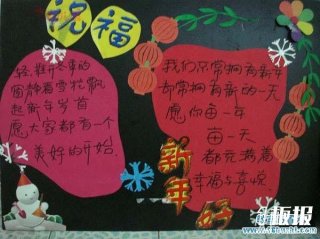 祝福
轻推开冬季的
窗静看雪花飘
起新年岁首
愿大家都有一个
美好的开始
我们不常拥有新年
却常拥有新的一天
愿你每一年
每一天
都充满着
幸福与喜悦
新年好
板报